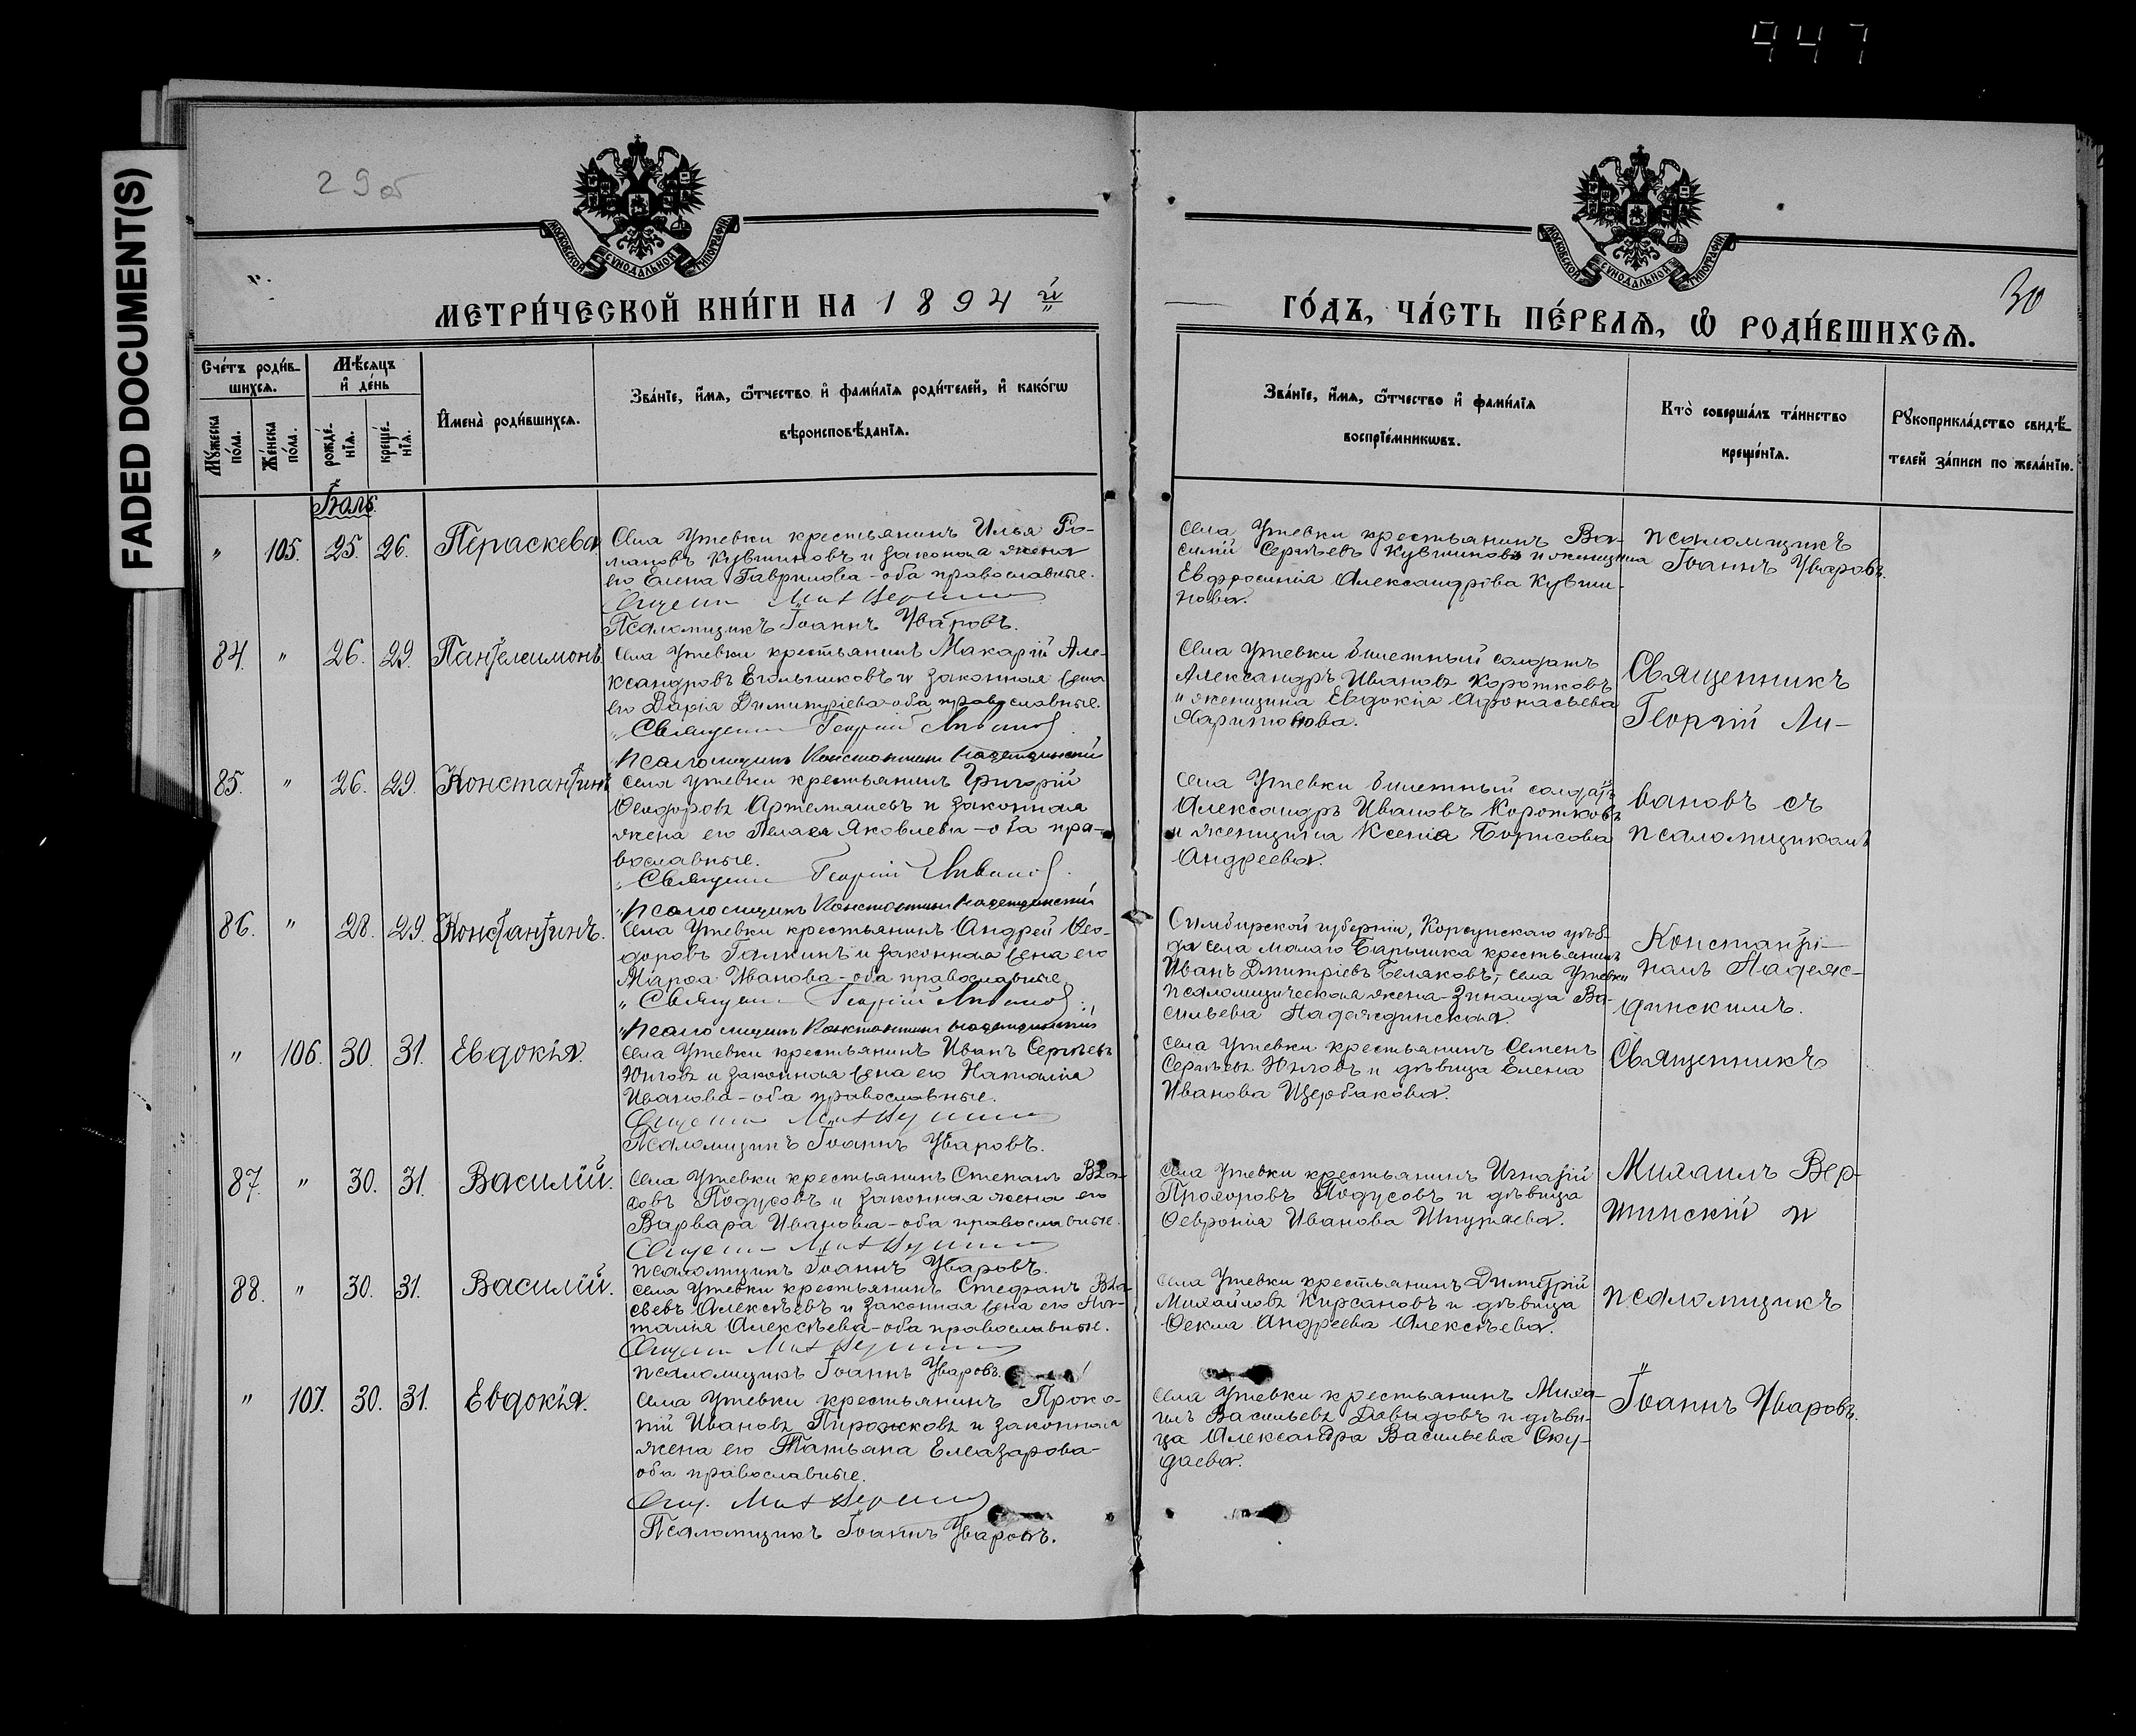 947
FADED DOCUMENT(S)
29об
30
МОСКОВСКОЙ СѴНОДАЛЬНОЙ ТИПОГРАФІИ
МОСКОВСКОЙ СѴНОДАЛЬНОЙ ТИПОГРАФІИ
МЕТРИ́ЧЕСКОЙ КНИ́ГИ НА 1894й
ГО́ДЪ, ЧА́СТЬ ПЕ́РВАѦ, Ѡ҆ РОДИ́ВШИХСѦ.
Сче́тъ роди́в-
шихсѧ.
Мѣ́сяцъ
и҆ де́нь
Мꙋ́жеска
по́ла.
Же́нска
по́ла.
рожде́-
нїѧ.
креще́-
нїѧ.
И҆мена̀ роди́вшихсѧ.
Зва́нїе, и҆́мѧ, ѻ҆́тчество и҆ фами́лїѧ роди́телей, и҆ како́гѡ
вѣроисповѣ́данїѧ.
Зва́нїе, и҆́мѧ, ѻ҆́тчество и҆ фами́лїѧ
воспрїе́мникѡвъ.
Кто̀ соверша́лъ та́инство
креще́нїѧ.
Рꙋкоприкла́дство свидѣ́-
телей за́писи по жела́нїю.
Іюль
" 105. 25. 26. Пераскева
Села Утевки крестьянинъ Илья Ро-
мановъ Кувшиновъ и законная жена
его Елена Гаврилова - оба православные.
Псаломщикъ Іоаннъ Уваровъ.
Села Утевки крестьянинъ Ва-
силій Сергѣевъ Кувшиновъ и женщина
Евфросинія Александрова Кувши-
нова.
Псаломщикъ
Іоаннъ Уваровъ.
84. " 26. 29. Пантелеимонъ
Села Утевки крестьянинъ Макарій Але-
ксандровъ Егольниковъ и законная жена
его Дарія Димитріева - оба православные.
Священн Георгій Ливанов
Псаломщикъ Константинъ Надеждинскій
Села Утевки билетный солдатъ
Александръ Ивановъ Коротковъ
и женщина Евдокія Афонасьева
Харитонова.
Священникъ
Георгій Ли-
85. " 26. 29. Константинъ
Села Утевки крестьянинъ Григорій
Ѳеодоровъ Артемашевъ и законная
жена его Пелагея Яковлева - оба пра-
вославные.
Священн Георгій Ливанов
Псаломщикъ Константинъ Надеждинскій
Села Утевки билетный солдатъ
Александръ Ивановъ Коротковъ
и женщина Ксенія Борисова
Андреева.
вановъ съ
псаломщикомъ
86. " 28. 29. Константинъ.
Села Утевки крестьянинъ Андрей Ѳео-
доровъ Галкинъ и законная жена его
Марѳа Иванова - оба православные.
Священн Георгій Ливанов
Псаломщикъ Константинъ Надеждинскій
Симбирской губерніи, Корсунскаго уѣз-
да села Малаго Барышка крестьянинъ
Иванъ Дмитріевъ Беляковъ, села Утевки
псаломщическая жена Зинаида Ва-
сильева Надеждинская.
Константи-
номъ Надеж-
динскимъ.
" 106. 30. 31. Евдокія.
Села Утевки крестьянинъ Иванъ Сергѣевъ
и законная жена его Наталія
Иванова - оба православные.
Псаломщикъ Іоаннъ Уваровъ.
Села Утевки крестьянинъ Семенъ
Сергѣевъ и дѣвица Елена
Иванова Щербакова.
Священникъ
87. " 30. 31. Василій.
Села Утевки крестьянинъ Степанъ Вла-
совъ Подусовъ и законная жена его
Варвара Иванова - оба православные.
Псаломщикъ Іоаннъ Уваровъ.
Села Утевки крестьянинъ Игнатій
Прохоровъ Подусовъ и дѣвица
Ѳевронія Иванова
Михаилъ Вер-
шинскій и
88. " 30. 31. Василій.
Села Утевки крестьянинъ Стефанъ Вла-
сьевъ Алексѣевъ и законная жена его На-
талія Алексѣева - оба православные.
Псаломщикъ Іоаннъ Уваровъ.
Села Утевки крестьянинъ Димитрій
Михайловъ Кирсановъ и дѣвица
Ѳекла Андреева Алексѣева.
псаломщикъ
" 107. 30. 31. Евдокія.
Села Утевки крестьянинъ Проко-
пій Ивановъ Пирожковъ и законная
жена его Татьяна Елеазарова -
оба православные.
Псаломщикъ Іоаннъ Уваровъ.
Села Утевки крестьянинъ Миха-
илъ Васильевъ Давыдовъ и дѣви-
ца Александра Васильева Ску-
даева.
Іоаннъ Уваровъ.